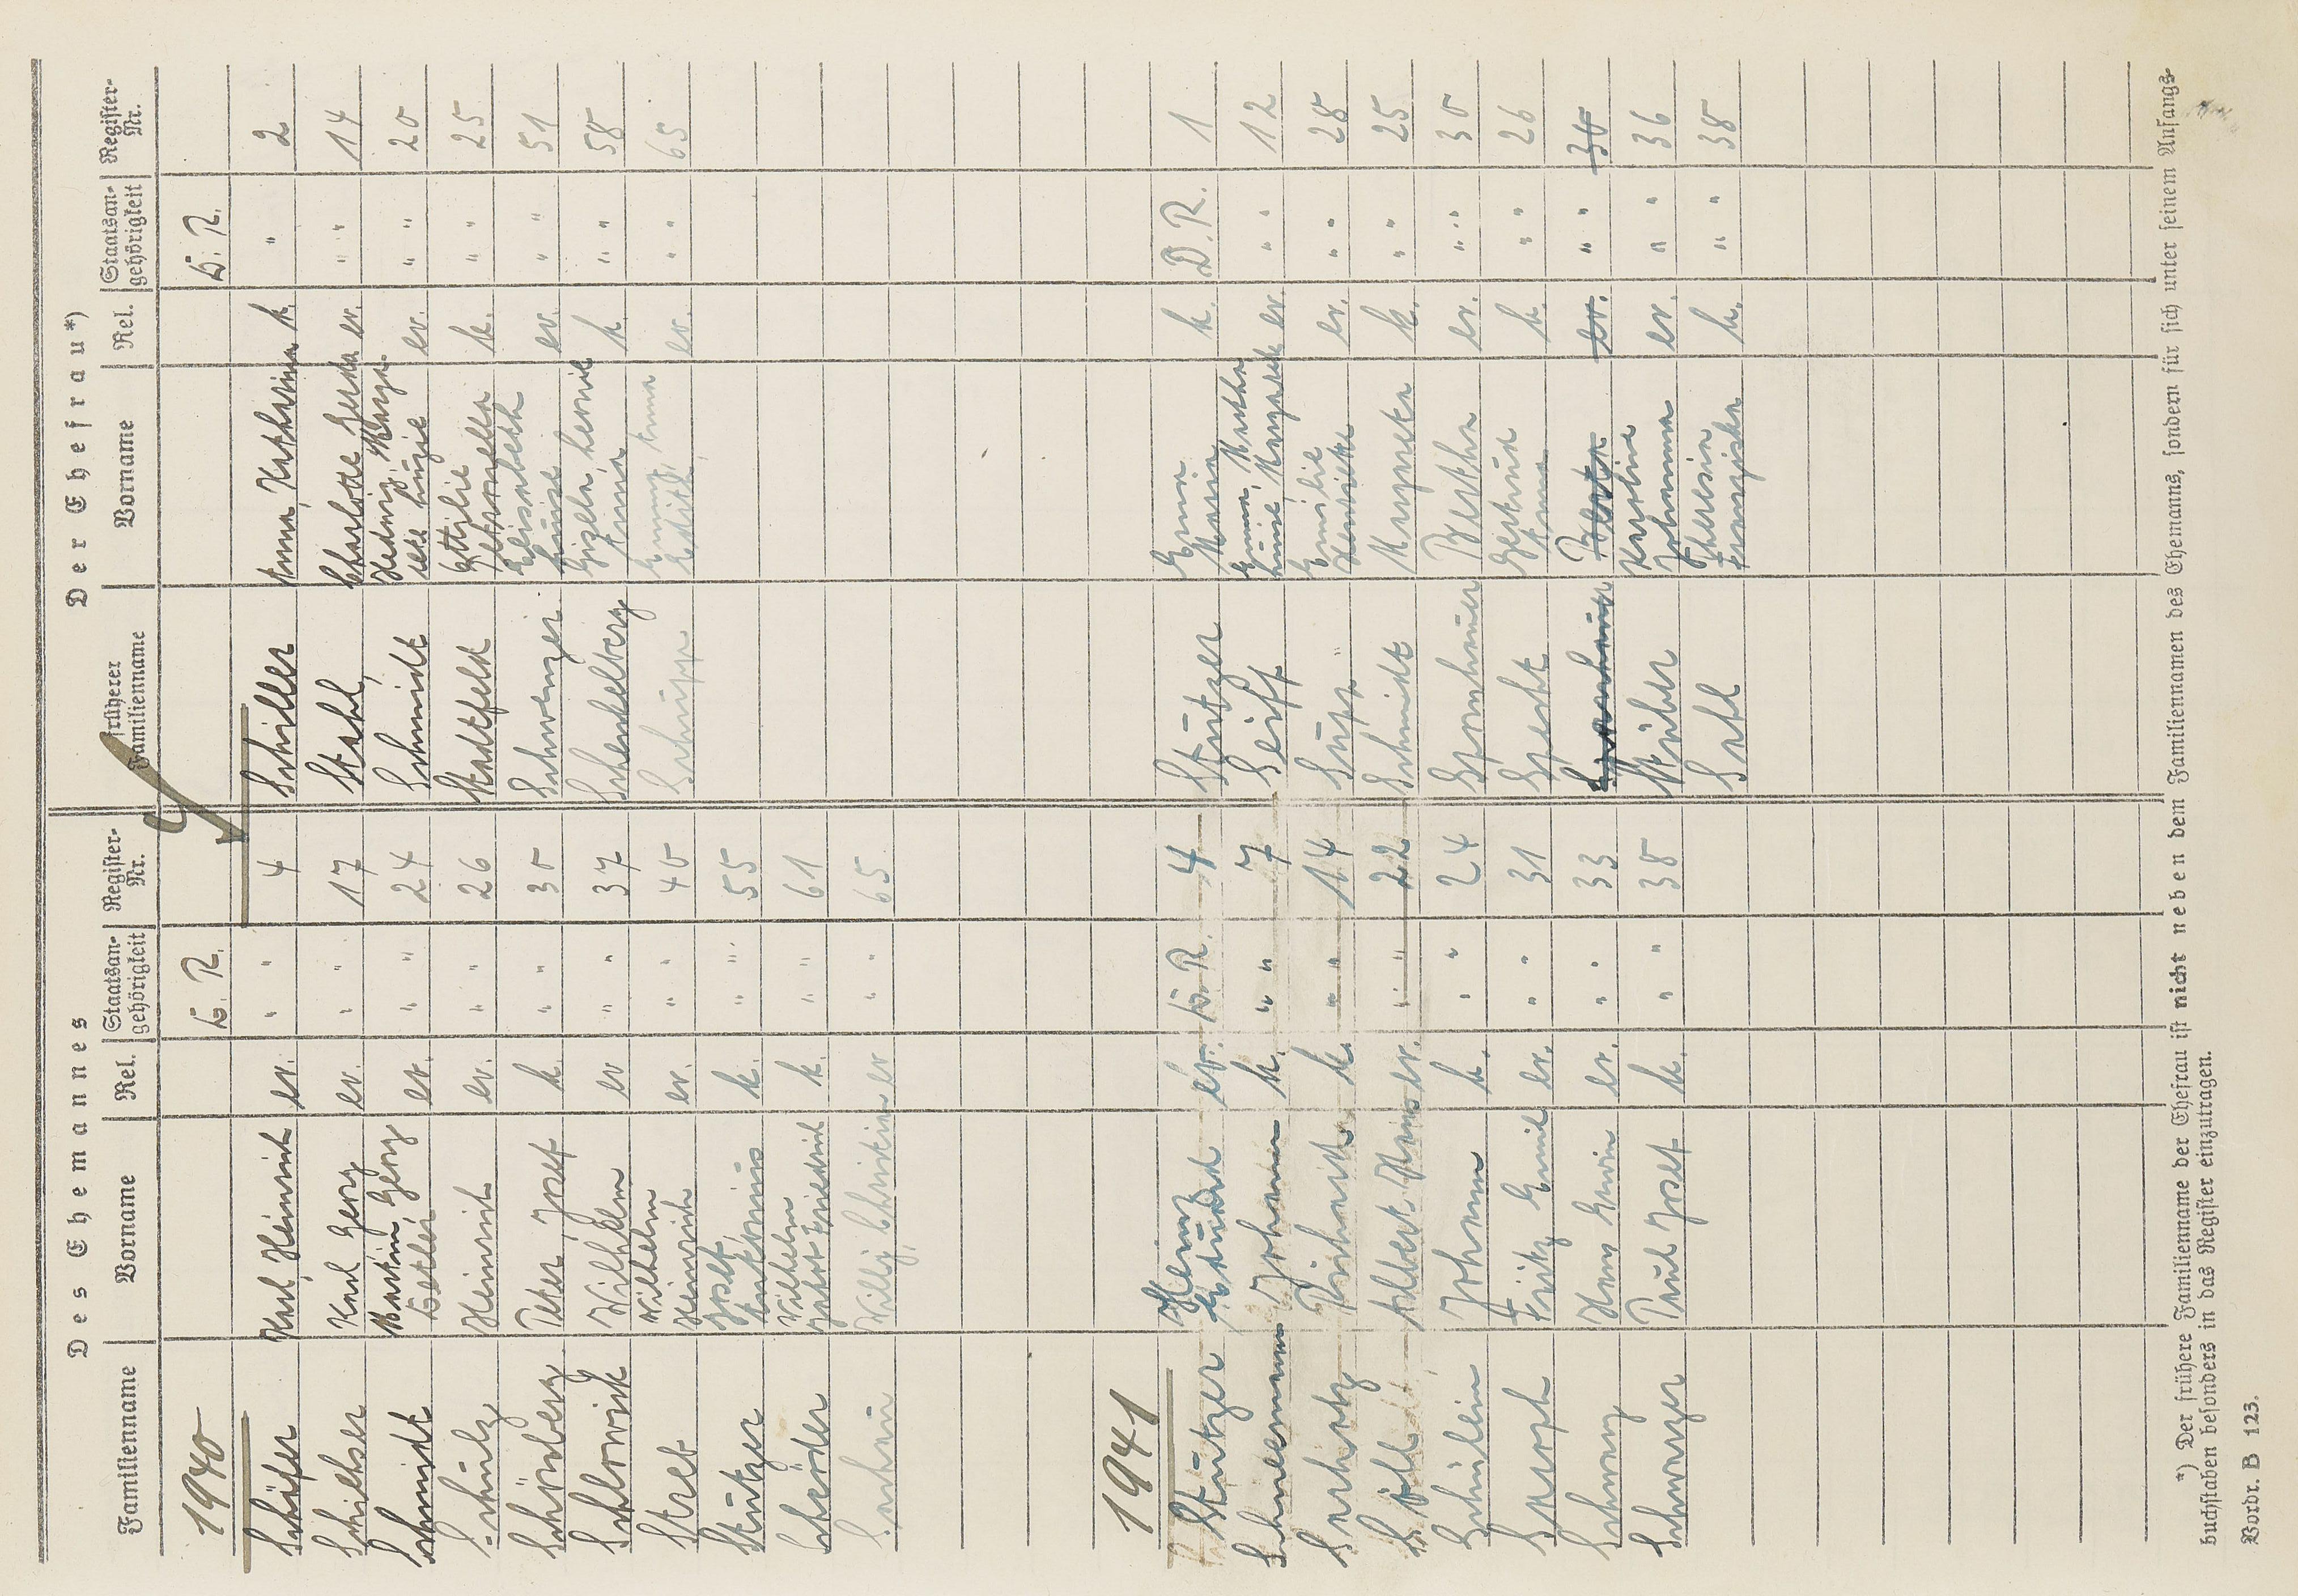 Des Ehemannes
Der Ehefrau*)
Familienname Vorname Rel. Staatsan-gehörigkeit Register-Nr. früherer Familienname Vorname Rel. Staatsan-gehörigkeit Register-Nr.
1940 D. R. D. R.
Schäfer Karl, Heinrich ev. " " 4 Schiller Anna, Katharina k. " 2
Karl Georg ev. " " 17 Stahl Charlotte Gerda ev. " " 14
Schmidt Martin Georg Detlef ev. " " 24 Schmidt Hedwig, Marga- ev. " " 20
Schultz Heinrich ev. " " 26 Stadtfeld Ottilie Petronella k. " " 25
Schönberg Peter, Josef k. " " 30 Schwenzer Elisabeth Luise ev. " " 51
Wilhelm ev " " 37 Schenkelberg Gisela, Anna k. " " 58
Wilhelm Heinrich ev. " " 40 Schupp Emmy, Anna Edith ev. " " 65
Stützer Josef, Antonius k. " " 55
Schröder Wilhelm Jakob Friedrich k. " " 61
Willy, Christian ev " " 65
1941
Stützer Eduard ev. D. R. 4 Stützer Erna Maria k. D. R. 1
Schneemann Johann k. " " 7 Seiff Emma, Martha ev. " " 12
Richard k. " " 14 Supp " Emilie Henriette ev. " " 28
Albert Hans ev. " " 22 Schmidt Margareta k. " " 25
Johann k. " " 24 Sponheuer Bertha ev. " " 30
Fritz Emil ev. " " 31 Specht Gertrud Anna k. " " 26
Hans Erwin ev. " " 33 Sponheuer Berta ev. " " 30
Schwenzer Paul Josef k. " " 38 Karoline Johanna ev. " " 36
Theresia Franziska k. " " 38
*) Der frühere Familienname der Ehefrau ist nicht neben dem Familiennamen des Ehemanns, sondern für sich unter seinem Anfangs-
buchstaben besonders in das Register einzutragen.
Vordr. B 123.